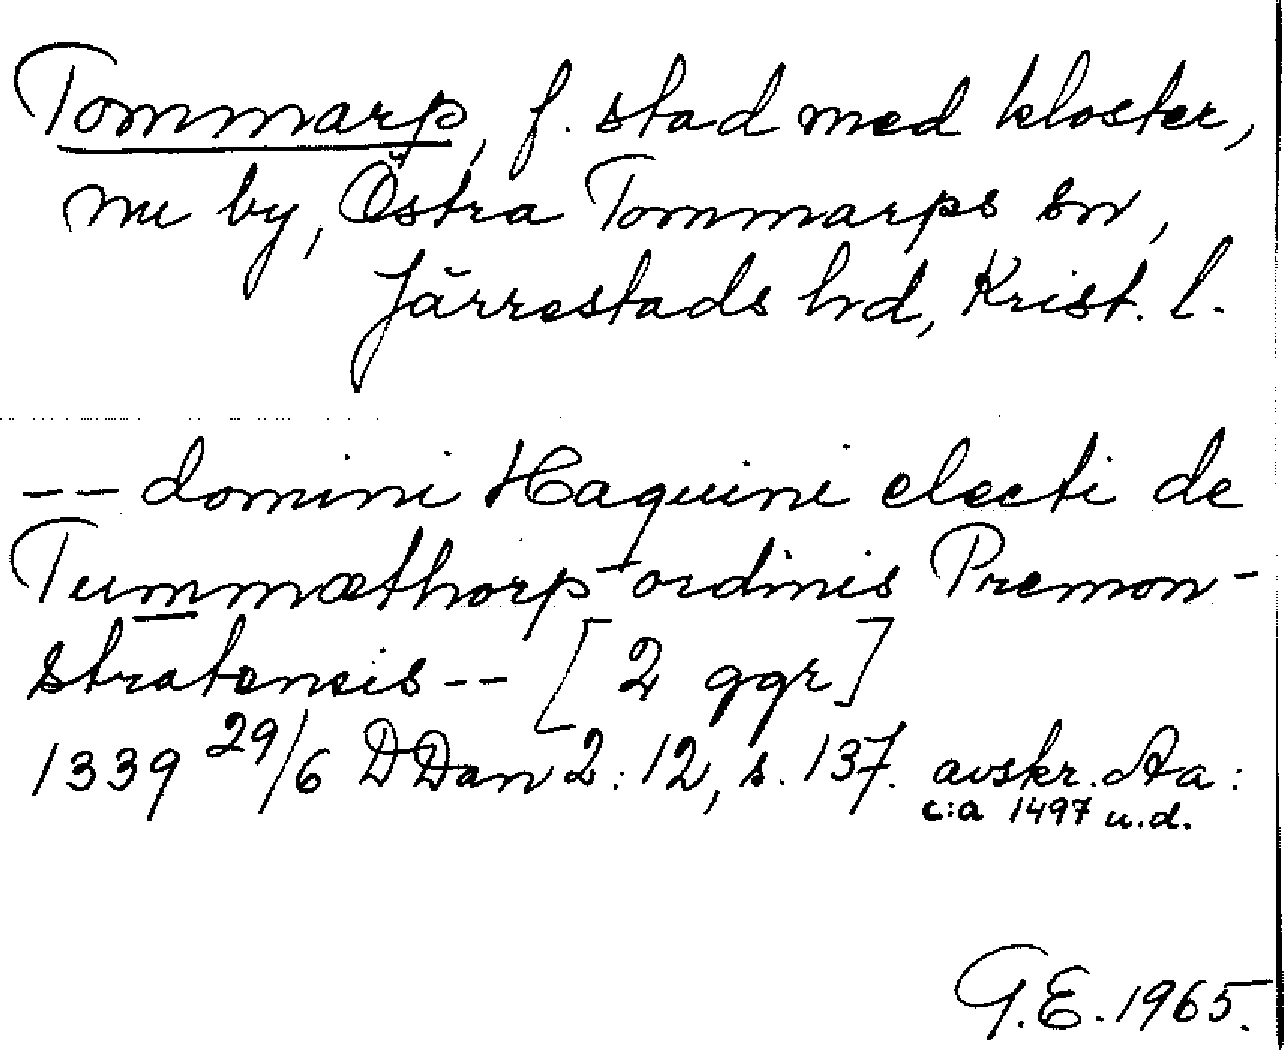 Tommarp, f. stad med kloster,
nu by, Östra Tommarps sn,
Järrestads hd, Krist. l.
-- domini Haquini electi de
Tummæthorp ordinis Premon-
stratensis -- [2 ggr]
1339 29/6 DDan 2:12, s. 137. avskr. Aa:
c:a 1497 u.d.
G.E. 1965.